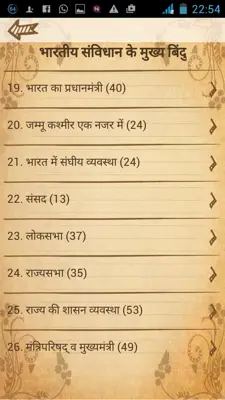 22:54
भारतीय संविधान के मुख्य बिंदु
19. भारत का प्रधानमंत्री (40)
20. जम्मू कश्मीर एक नजर में (24)
21. भारत में संघीय व्यवस्था (24)
22. संसद (13)
23. लोकसभा (37)
24. राज्यसभा (35)
25. राज्य की शासन व्यवस्था (53)
26. मंत्रिपरिषद् व मुख्यमंत्री (49)